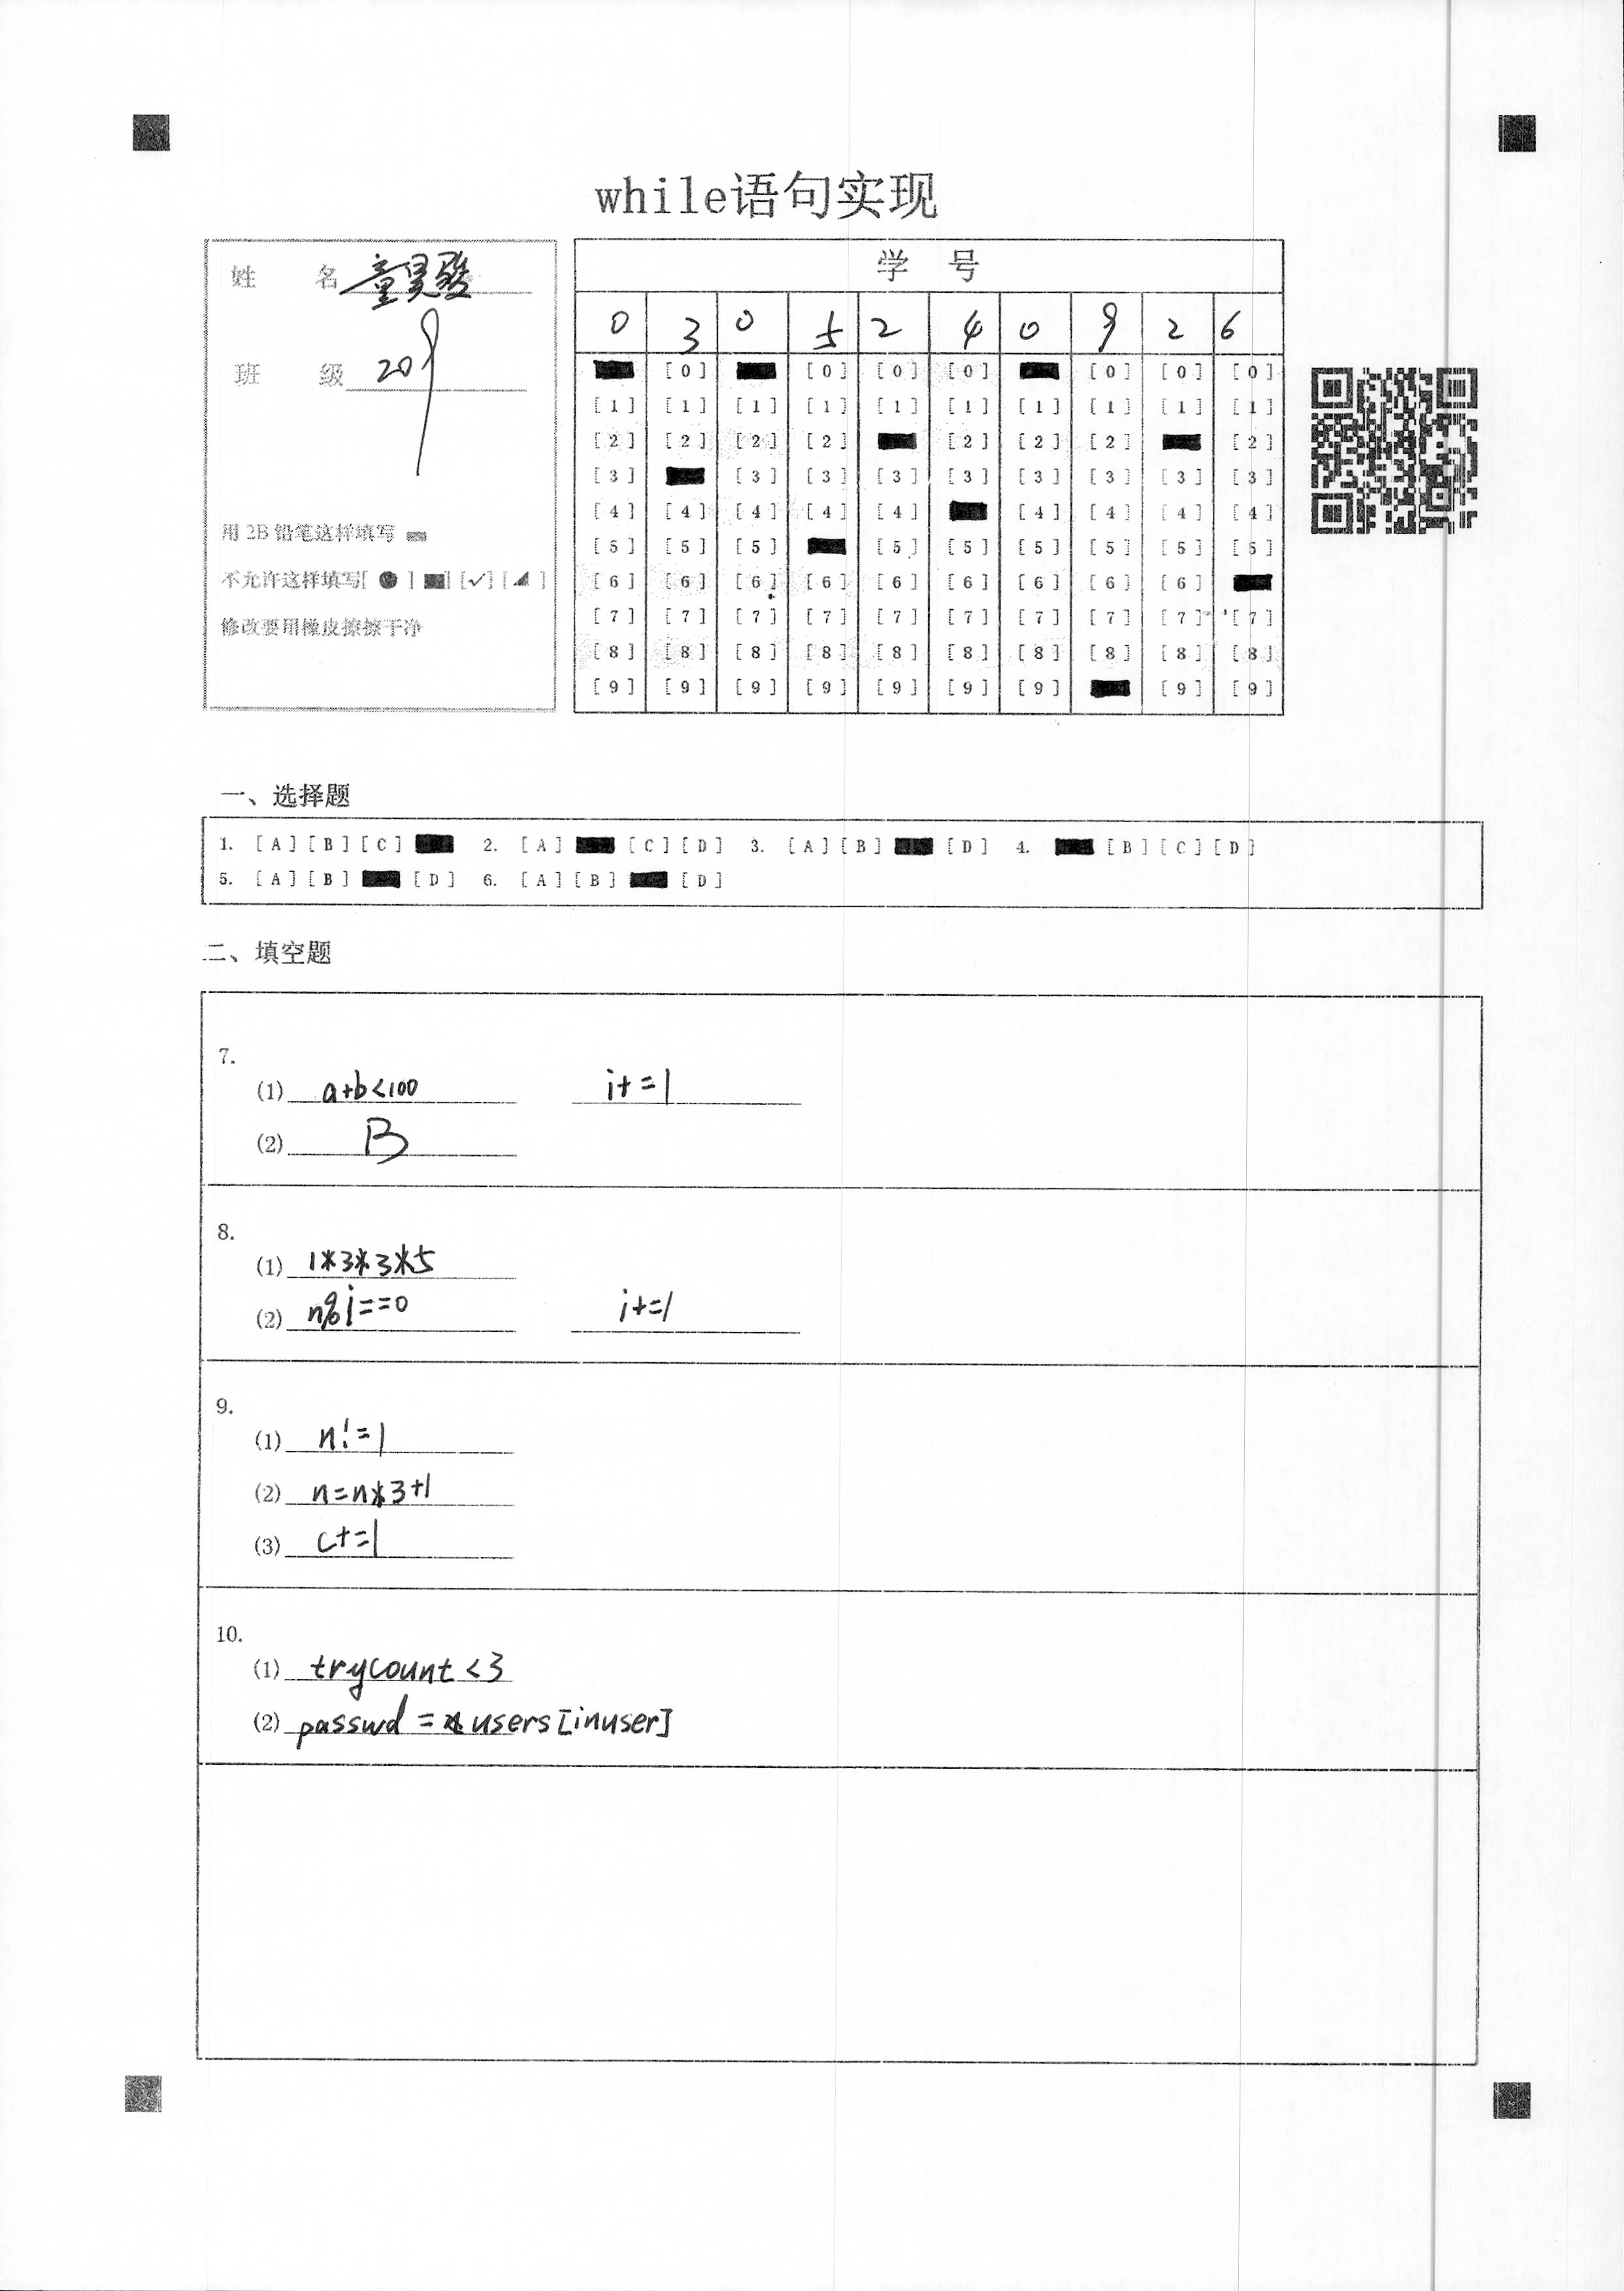 while语句实现
姓 名 童昊骏
班 级 209
用 2B 铅笔这样填写
不允许这样填写[ ● ] ■] [✓] [◢ ]
修改要用橡皮擦擦干净
学 号
0 3 0 5 2 4 0 9 2 6
[0] [0] [0] [0] [0] [0] [0]
[1] [1] [1] [1] [1] [1] [1] [1] [1] [1]
[2] [2] [2] [2] [2] [2] [2] [2]
[3] [3] [3] [3] [3] [3] [3] [3] [3]
[4] [4] [4] [4] [4] [4] [4] [4] [4]
[5] [5] [5] [5] [5] [5] [5] [5] [5]
[6] [6] [6] [6] [6] [6] [6] [6] [6]
[7] [7] [7] [7] [7] [7] [7] [7] [7] [7]
[8] [8] [8] [8] [8] [8] [8] [8] [8] [8]
[9] [9] [9] [9] [9] [9] [9] [9] [9]
一、选择题
1. [A] [B] [C] 2. [A] [C] [D] 3. [A] [B] [D] 4. [B] [C] [D]
5. [A] [B] [D] 6. [A] [B] [D]
二、填空题
7.
(1) a+b<100 i+=1
(2) B
8.
(1) 1*3*3*5
(2) n%i==0 i+=1
9.
(1) n!=1
(2) n=n*3+1
(3) c+=1
10.
(1) trycount<3
(2) passwd = users[inuser]